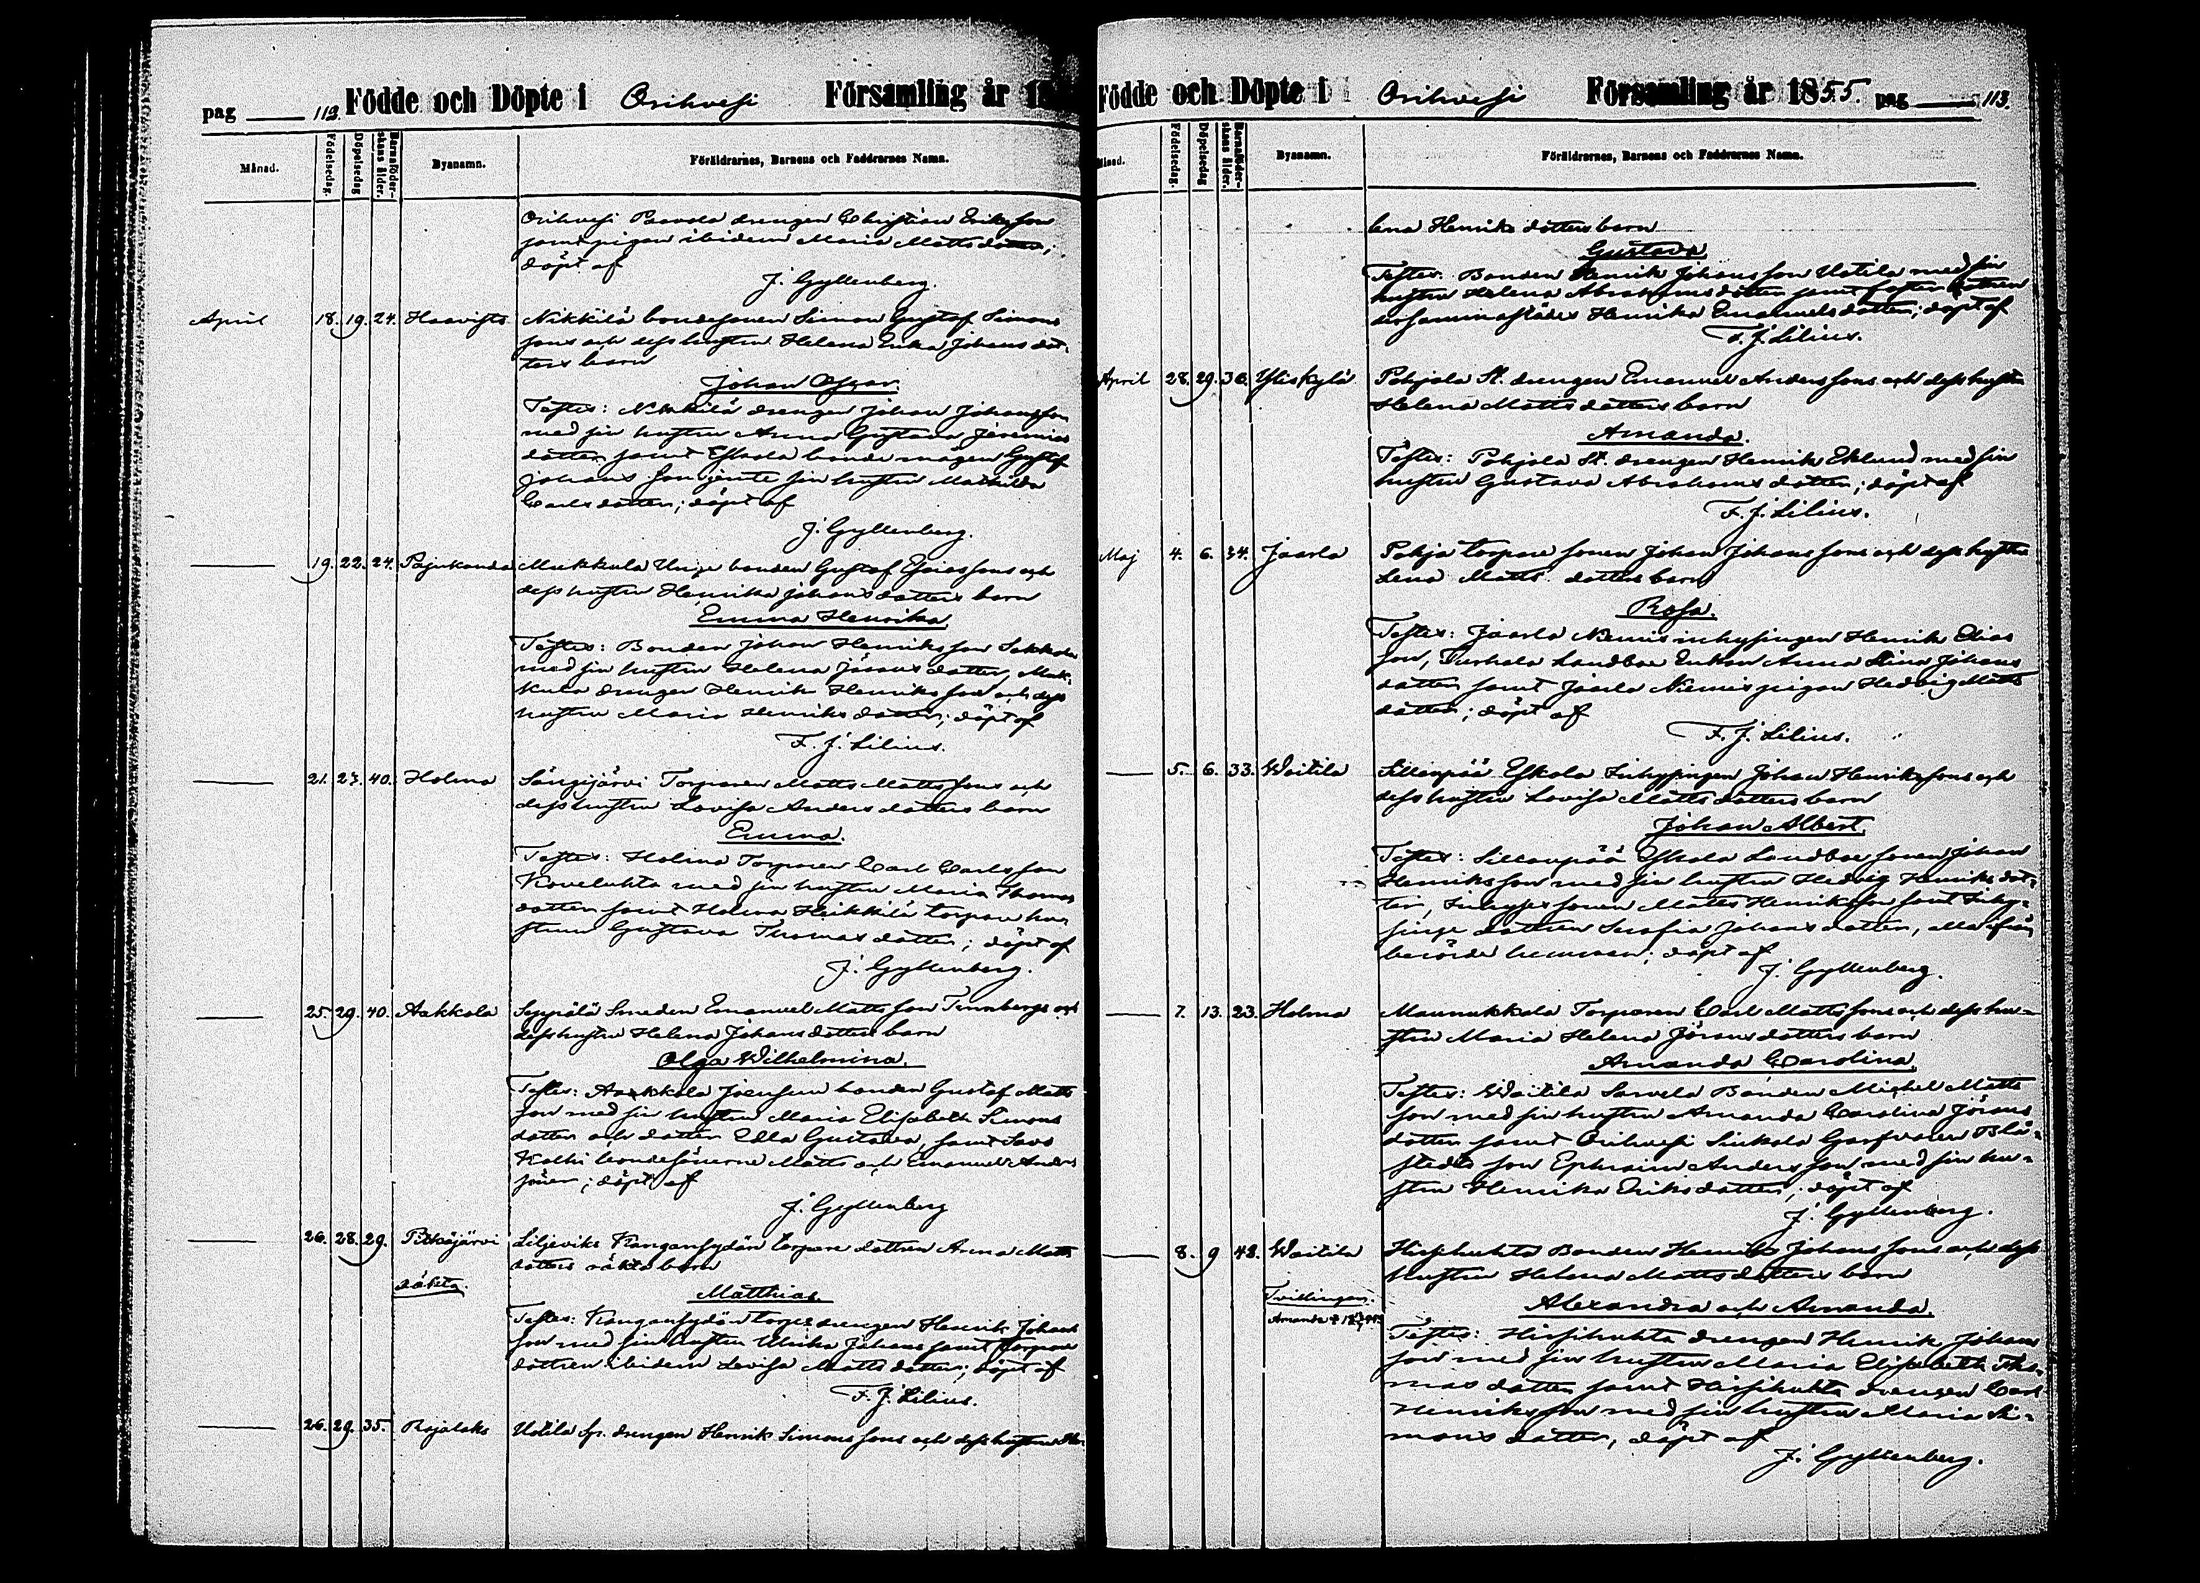 pag 112. Födde och Döpte i Orihvesi Församling år 18
Månad. Födelsedag. Döpelsedag Barnaföderskans ålder. Byanamn. Föräldrarnes, Barnens och Faddrarnes Namn.
Orihvesi Paavola drengen Christian Eriksson
samt pigan ibidem Maria Mattsdotter;
döpt af
J. Gyllenberg.
April 18. 19. 24. Haavisto Nikkilä bondesonen Simon Gustaf Simons
sons och dess hustru Helena Erika Johans dot-
ters barn
Johan Oscar.
Testes: Nikkilä drengen Johan Johansson
med sin hustru Anna Gustava Jeremias
dotter samt Eskola bonde mågen Gustaf
Johans son jemte sin hustru Mathilda
Carls dotter; döpt af
J. Gyllenberg.
19. 22. 24. Pajukanda Mukkula Unge bonden Gustaf Esaiassons och
dess hustru Henrika Johans dotters barn
Emma Henrika.
Testes: Bonden Johan Henriksson Sakkola
med sin hustru Helena Jörans dotter, Muk-
kula drengen Henrik Henriks son och dess
hustru Maria Henriks dotter; döpt af
F. J. Lilius.
21. 23. 40. Holma Sängijärvi Torparen Matts Matts sons och
dess hustru Lovisa Anders dotters barn
Emma.
Testes: Holma Torparen Carl Carlsson
Koveluhta med sin hustru Maria Thomas
dotter samt Holma Heikkilä torpare hu-
strun Gustava Thomas dotter; döpt af
J. Gyllenberg.
25. 29. 40. Aakkola Seppälä Smeden Emanuel Mattsson Tennbergs och
dess hustru Helena Johans dotters barn
Olga Wilhelmina.
Testes: Aakkola Joensuu bonden Gustaf Matts
son med sin hustru Maria Elisabeth Simons
dotter och dotter Edla Gustava, samt Savo
Kalhi bondesönerne Matts och Emanuel Anders
söner; döpt af
J. Gyllenberg
26. 28. 29. Pitkäjärvi Liljeviks Kangansydän torpare dottren Anna Matts
dotters oäkta barn
oäkta.
Matthias.
Testes: Kangansydän torpsdrengen Henrik Johans
son med sin hustru Ulrika Johans samt torpare
dottren ibidem Lovisa Matts dotter; döpt af
F. J. Lilius.
26. 29. 35. Rajalaks Uotila Sr. drengen Henrik Simonssons och dess hustru He-
Födde och Döpte i Orihvesi Församling år 1855. pag 113.
Månad. Födelsedag. Döpelsedag Barnaföderskans ålder. Byanamn. Föräldrarnes, Barnens och Faddrarnes Namn.
lena Henriks dotters barn
Gustava
Testes: Bonden Henrik Johansson Uotila med sin
hustru Helena Abrahams dotter samt foster dottren
dersammastädes Henrika Emanuelsdotter; döpt af
F. J. Lilius.
April 28. 29. 36. Yliskylä Pohjola St. drengen Emanuel Anders sons och dess hustru
Helena Matts dotters barn
Amanda.
Testes: Pohjola St. drengen Henrik Eklund med sin
hustru Gustava Abrahams dotter; döpt af
F. J. Lilius.
Maj 4. 6. 34. Jaarla Pohja torpare sonen Johan Johans sons och dess hustru
Lena Matts dotters barn
Rosa.
Testes: Jaarla Niemis inhysingen Henrik Elias
son, Turkala Landboe Enkan Anna Stina Johans
dotter samt Jaarla Niemis pigan Hedvig Matts
dotter; döpt af
F. J. Lilius.
5. 6. 33. Waitila Sillanpää Eskola Inhysingen Johan Henrikssons och
dess hustru Lovisa Matts dotters barn
Johan Albert.
Testes: Sillanpää Eskola Landboe sonen Johan
Henriksson med sin hustru Hedvig Henriks dot-
ter, Inhyses sonen Matts Henriksson samt Inhy-
singe dottren Serafia Johans dotter, alla ifrån
berörde hemman; döpt af
J. Gyllenberg.
7. 13. 23. Holma Maunukkala Torparen Carl Mattssons och dess hu-
stru Maria Helena Jörans dotters barn
Amanda Carolina.
Testes: Waitila Sarvela Bonden Michel Matts
son med sin hustru Amanda Carolina Jörans
dotter samt Orihvesi Sinkola Garfvaren Blå-
stedts son Ephraim Anders son med sin hu-
stru Henrika Eriksdotter; döpt af
J. Gyllenberg.
8. 9 48. Waitila Hirsihuhta Bonden Henrik Johans sons och dess
hustru Helena Matts dotters barn
Tvillingar.
Alexandra och Amanda.
Testes: Hirsihuhta drengen Henrik Johans
son med sin hustru Maria Elisabeth Tho-
mas dotter samt Hirsihuhta drengen Carl
Henriksson med sin hustru Maria Si-
mons dotter; döpt af
J. Gyllenberg.